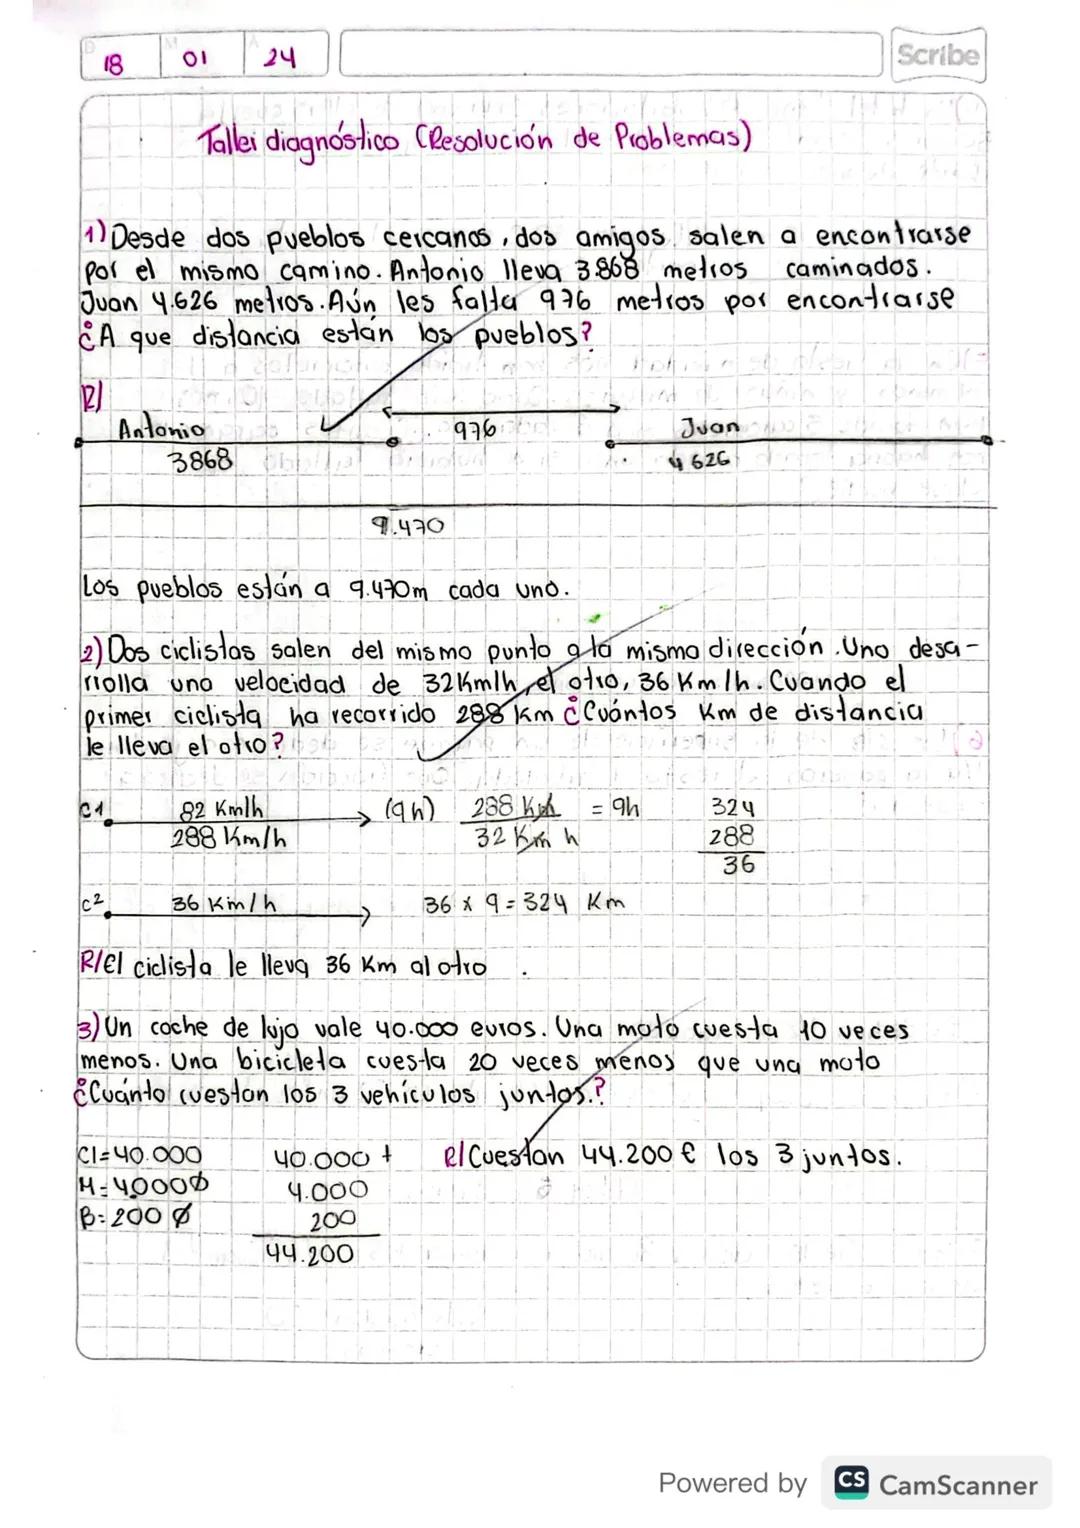 18 01 24
Scribe
Taller diagnóstico (Resolución de Problemas)
1) Desde dos pueblos cercanos, dos amigos salen a encontrarse
por el mismo camino. Antonio lleva 3.868 metros caminados.
Juan 4.626 metros. Aún les falta 976 metros por encontrarse
¿A que distancia están los pueblos?
R/
Antonio 976 Juan
3868 4 626
9.470
Los pueblos están a 9.470m cada uno.
2) Dos ciclistas salen del mismo punto a la misma dirección. Uno desa-
rrolla una velocidad de 32Km/h, el otro, 36 Km/h. Cuando el
primer ciclista ha recorrido 288 Km ¿Cuántos Km de distancia
le lleva el otro?
C1 82 Km/h (9h) 288 Km = 9h 324
288 Km/h 32 Km h 288
36
C2 36 Km/h 36 x 9 = 324 Km
R/El ciclista le lleva 36 Km al otro.
3) Un coche de lujo vale 40.000 euros. Una moto cuesta 10 veces
menos. Una bicicleta cuesta 20 veces menos que una moto
¿Cuánto cuestan los 3 vehículos juntos.?
Cl=40.000 40.000 + R/Cuestan 44.200 € los 3 juntos.
M=40000 4.000
B=2000 200
44.200
Powered by CS CamScanner